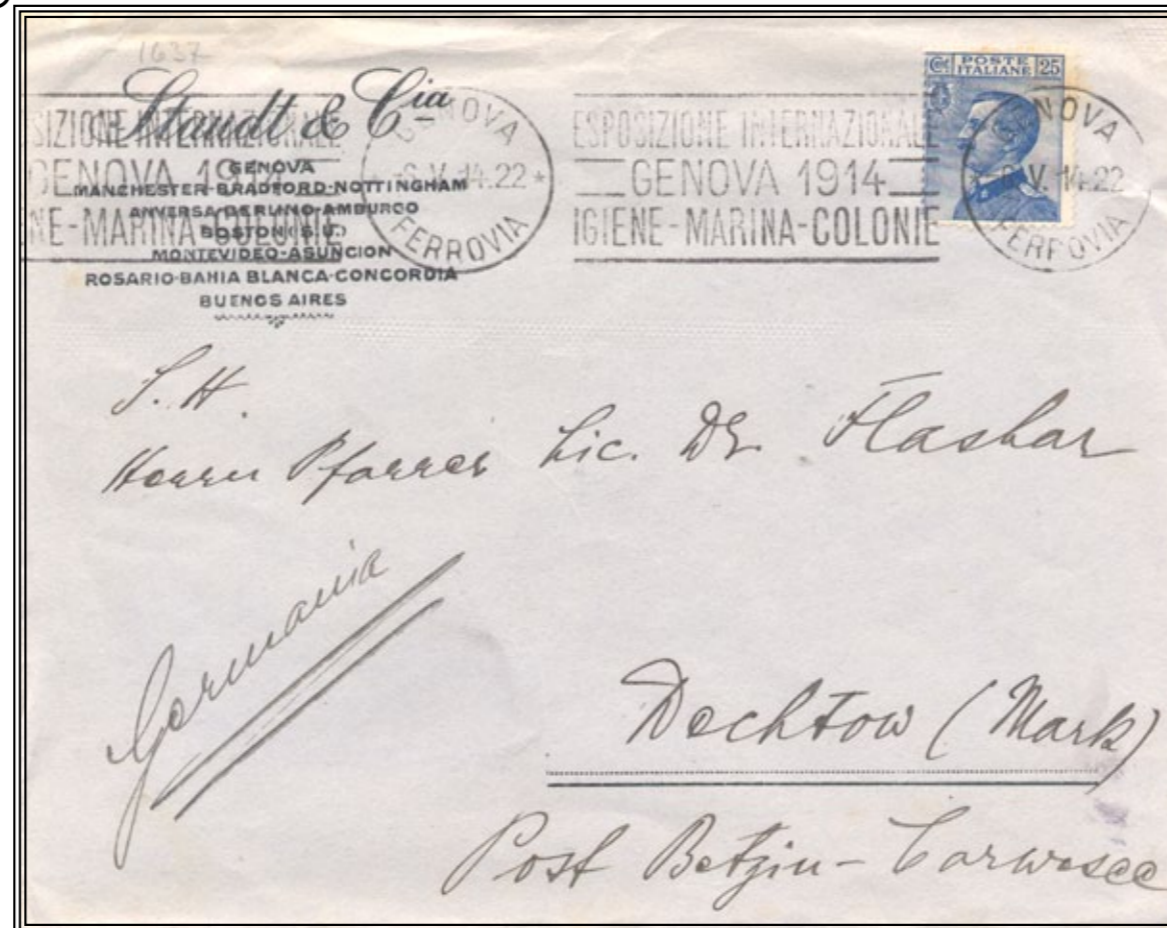 1637
Staudt & Cia
GENOVA
MANCHESTER-BRADFORD-NOTTINGHAM
ANVERSA-BERLINO-AMBURGO
BOSTON (S.U.)
MONTEVIDEO-ASUNCION
ROSARIO-BAHIA BLANCA-CONCORDIA
BUENOS AIRES
SIZIONE INTERNAZIONALE
GENOVA 1914
NE-MARINA-COLONIE
GENOVA
-6.V.14.22
FERROVIA
ESPOSIZIONE INTERNAZIONALE
GENOVA 1914
IGIENE-MARINA-COLONIE
GENOVA
V. 14.22
FERROVIA
Ct POSTE ITALIANE 25
S. H.
Herrn Pfarrer Lic. Dr. Flashar
Germania
Dechtow (Mark)
Post Betzin-Carwesee